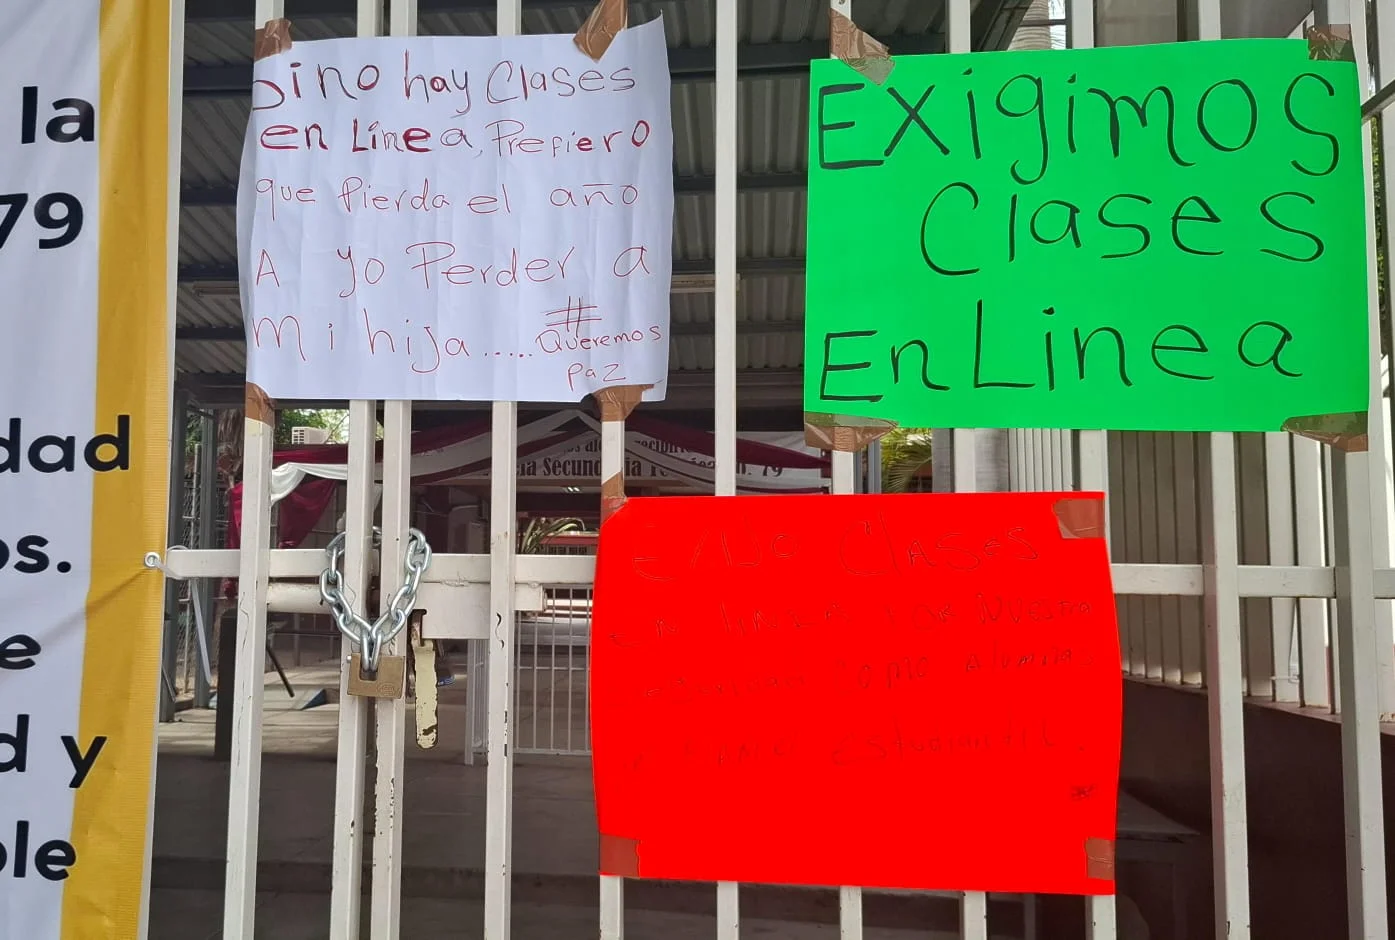 la
79
dad
os.
e
d y
ble
Si no hay Clases
en Línea, Prefiero
que Pierda el año
A yo Perder a
mi hija.....
#
Queremos
paz
EXigimos
Clases
En Linea
Secundaria Técnica No. 79
EXIJO CLASES
EN LINEA POR NUESTRA
COMO Alumnas
EStudiantil.